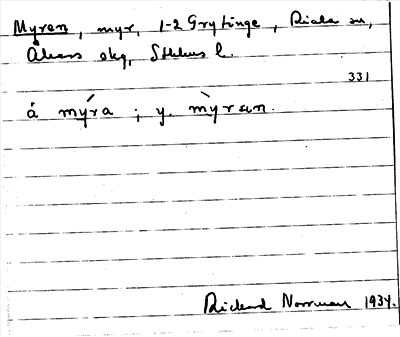 Myren, myr, 1-2 Grytinge, Riala sn,
Åkers skg, Sthlms l.
331
á mýra ; y. mỳrən.
Rickard Norrman 1934.